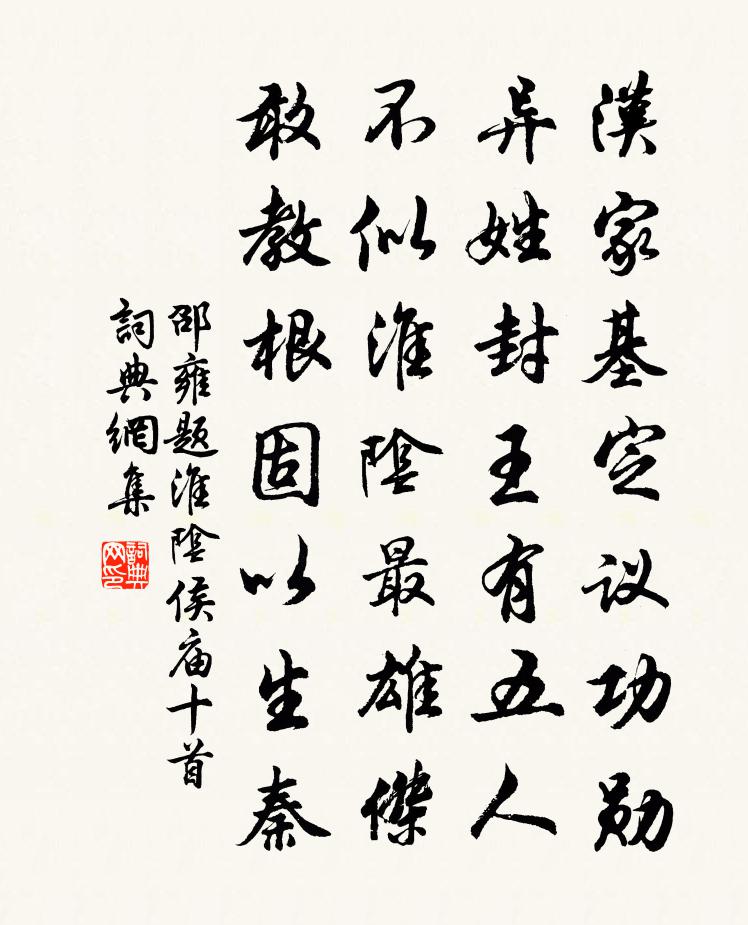 漢家基定议功勋
异姓封王有五人
不似淮陰最雄傑
敢教根固以生秦
邵雍题淮陰侯庙十首
詞典網集
詞典网印